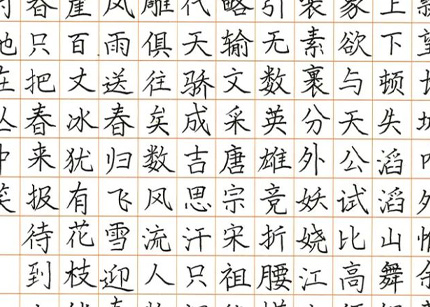 下顿失滔滔山舞
欲与天公试比高
素裹分外妖娆江
引无数英雄竞折腰
略输文采唐宗宋祖
代天骄成吉思汗只
雕俱往矣数风流人
风雨送春归飞雪迎
崖百丈冰犹有花枝
春只把春来报待到